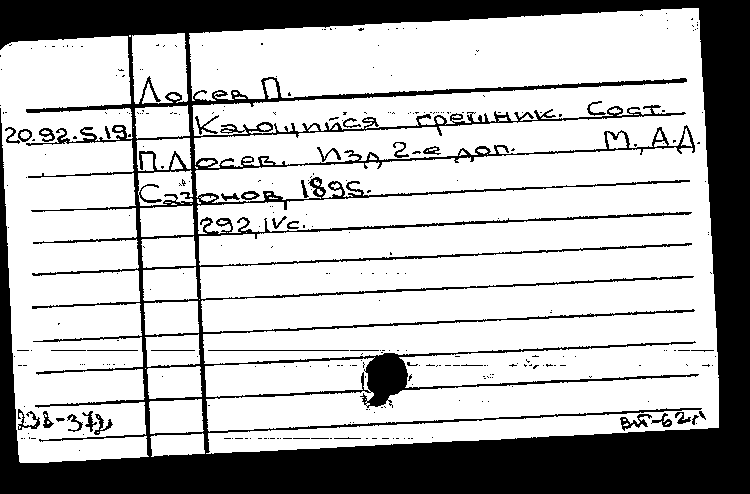 Лосев, П.
20.92.5.19. Кающийся грешник. Сост.
П. Лосев. Изд 2-е доп. М., А.Д.
Сазонов, 1895.
292, IV с.